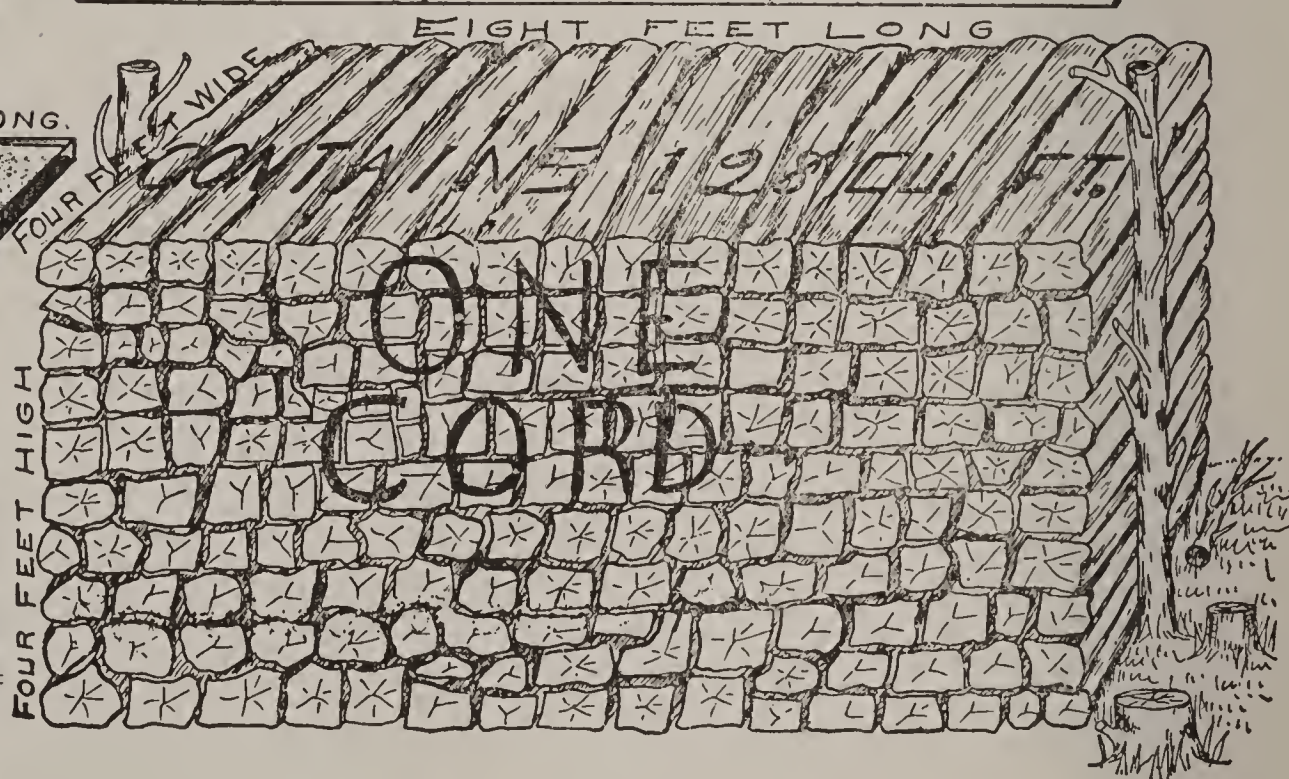 EIGHT FEET LONG
ONG.
FOUR FEET WIDE
CONTAINS 128 CU. FT.
ONE
CORD
FOUR FEET HIGH